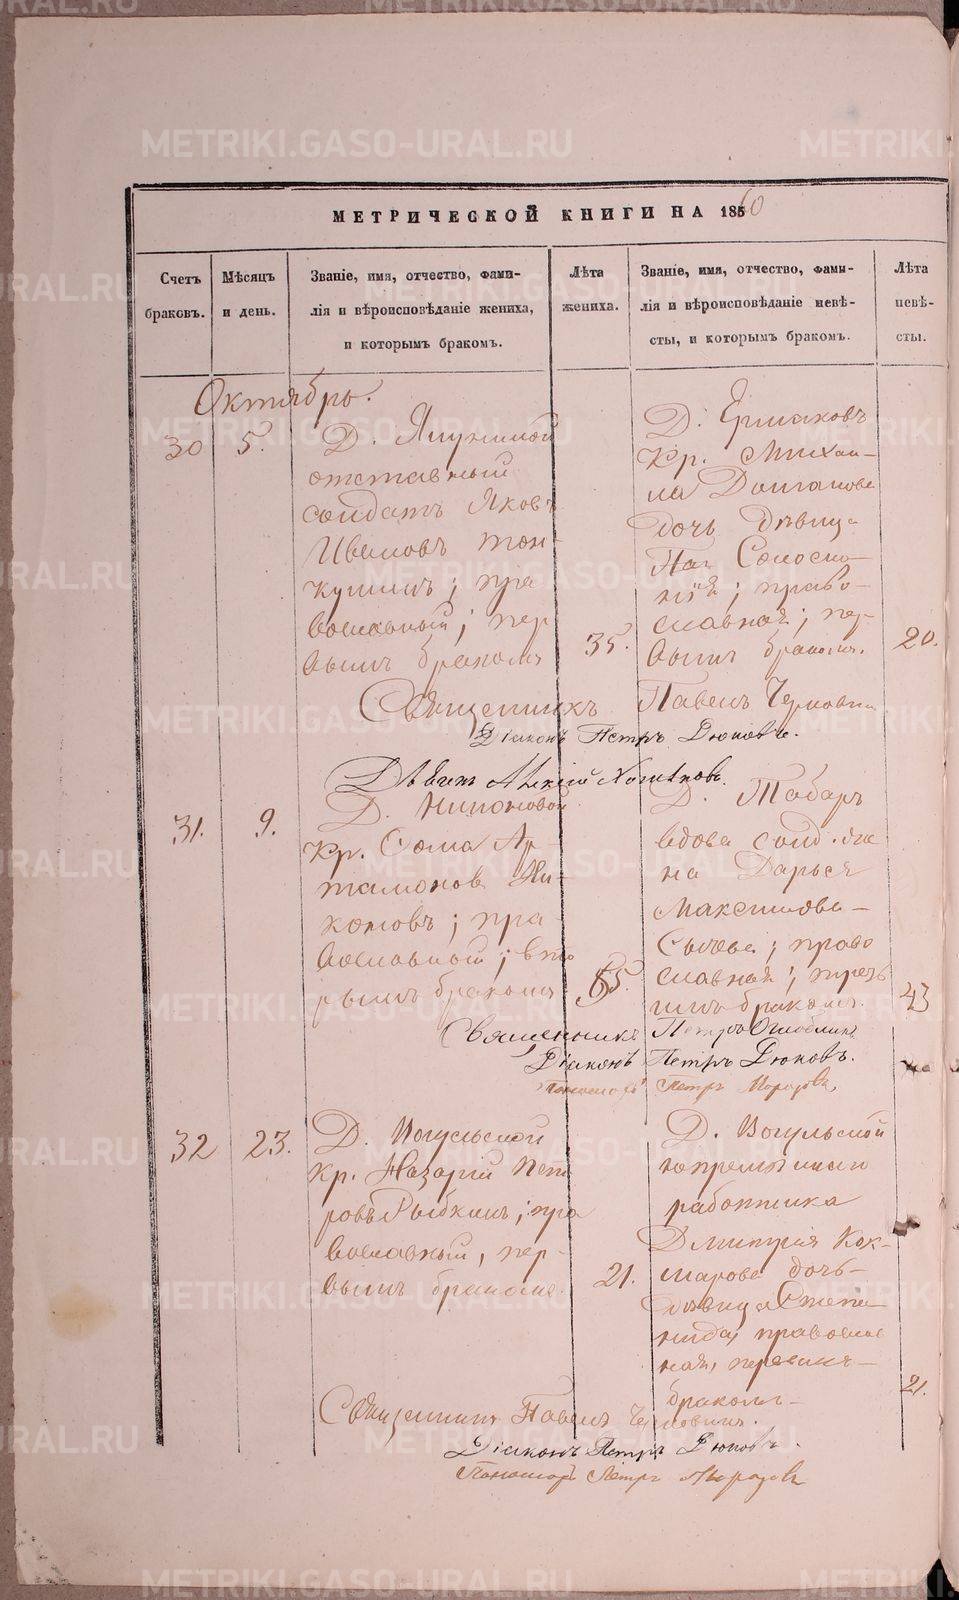 МЕТРИЧЕСКОЙ КНИГИ НА 1860
Счетъ браковъ.
Мѣсяцъ и день.
Званіе, имя, отчество, фами-
лія и вѣроисповѣданіе жениха,
и которымъ бракомъ.
Лѣта жениха.
Званіе, имя, отчество, фами-
лія и вѣроисповѣданіе невѣ-
сты, и которымъ бракомъ.
Лѣта невѣ-
сты.
Октябрь.
30
5.
Д.
отставный
солдатъ Яковъ
Ивановъ Тон-
кушинъ; пра
вославный; пер
вымъ бракомъ
35.
Д. Ермаковъ
Кр. Михаи-
ла
дочь девица
православная; пер-
вымъ бракомъ.
20.
Священникъ Павелъ
Діаконъ Петръ Дюковъ.
31.
9.
Д.
Кр. Сома Ар-
тамоновъ Ни-
коновъ; пра-
вославной; вто
рымъ бракомъ
65.
Д. Табаръ
вдова солд. же
на Дарья
Максимова
Сычева; право
славная; треть
имъ бракомъ.
43
Священникъ Петръ
Діаконъ Петръ Дюковъ.
Пономарь Петръ Морозовъ
32
23.
Д. Вогульской
кр. Назарій Пет
ровъ Рыбкинъ; пра
вославный, пер-
вымъ бракомъ.
21.
Д. Вогульской
непременнаго
работника
Дмитрія Кок-
шарова дочь
девица Степа-
нида, православ
ная, первымъ
бракомъ
21.
Священникъ Павелъ
Діаконъ Петръ Дюковъ.
Пономарь Петръ Морозовъ
METRIKI.GASO-URAL.RU